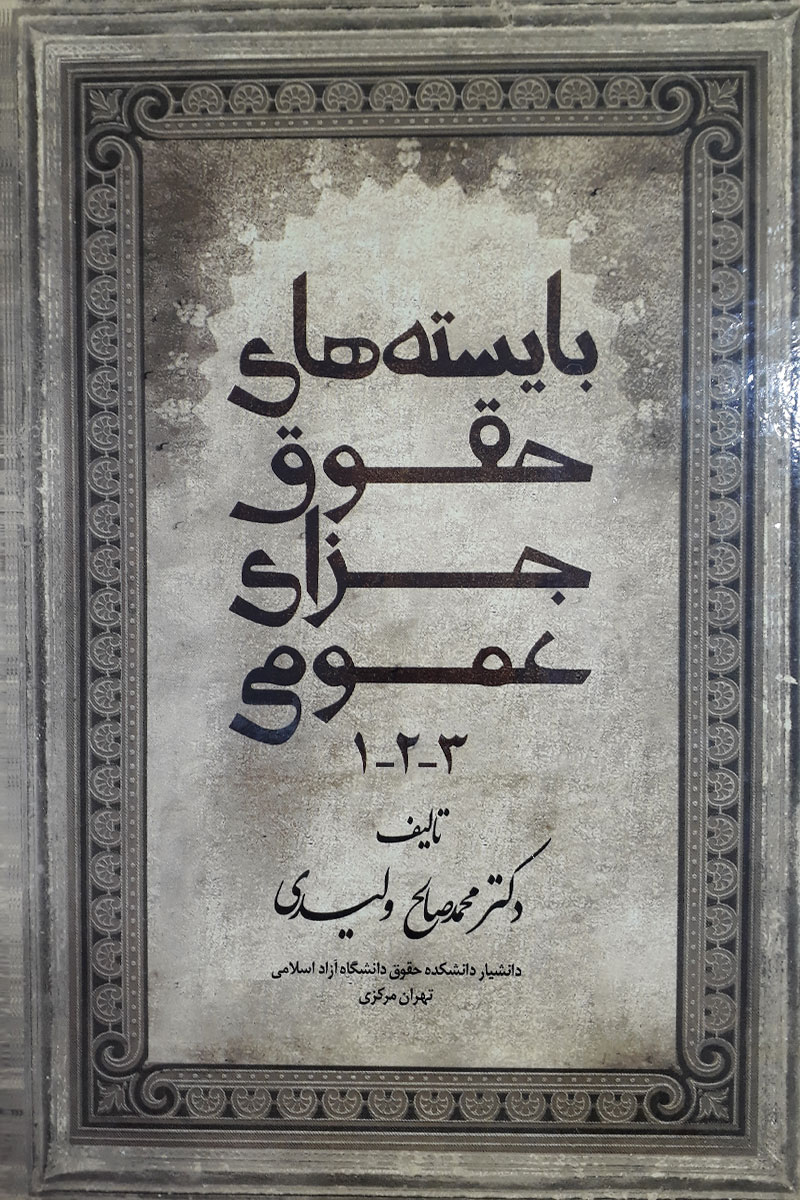 بایسته‌های
حقوق
جزای
عمومی
۳-۲-۱
تالیف
دکتر محمد صالح ولیدی
دانشیار دانشکده حقوق دانشگاه آزاد اسلامی
تهران مرکزی